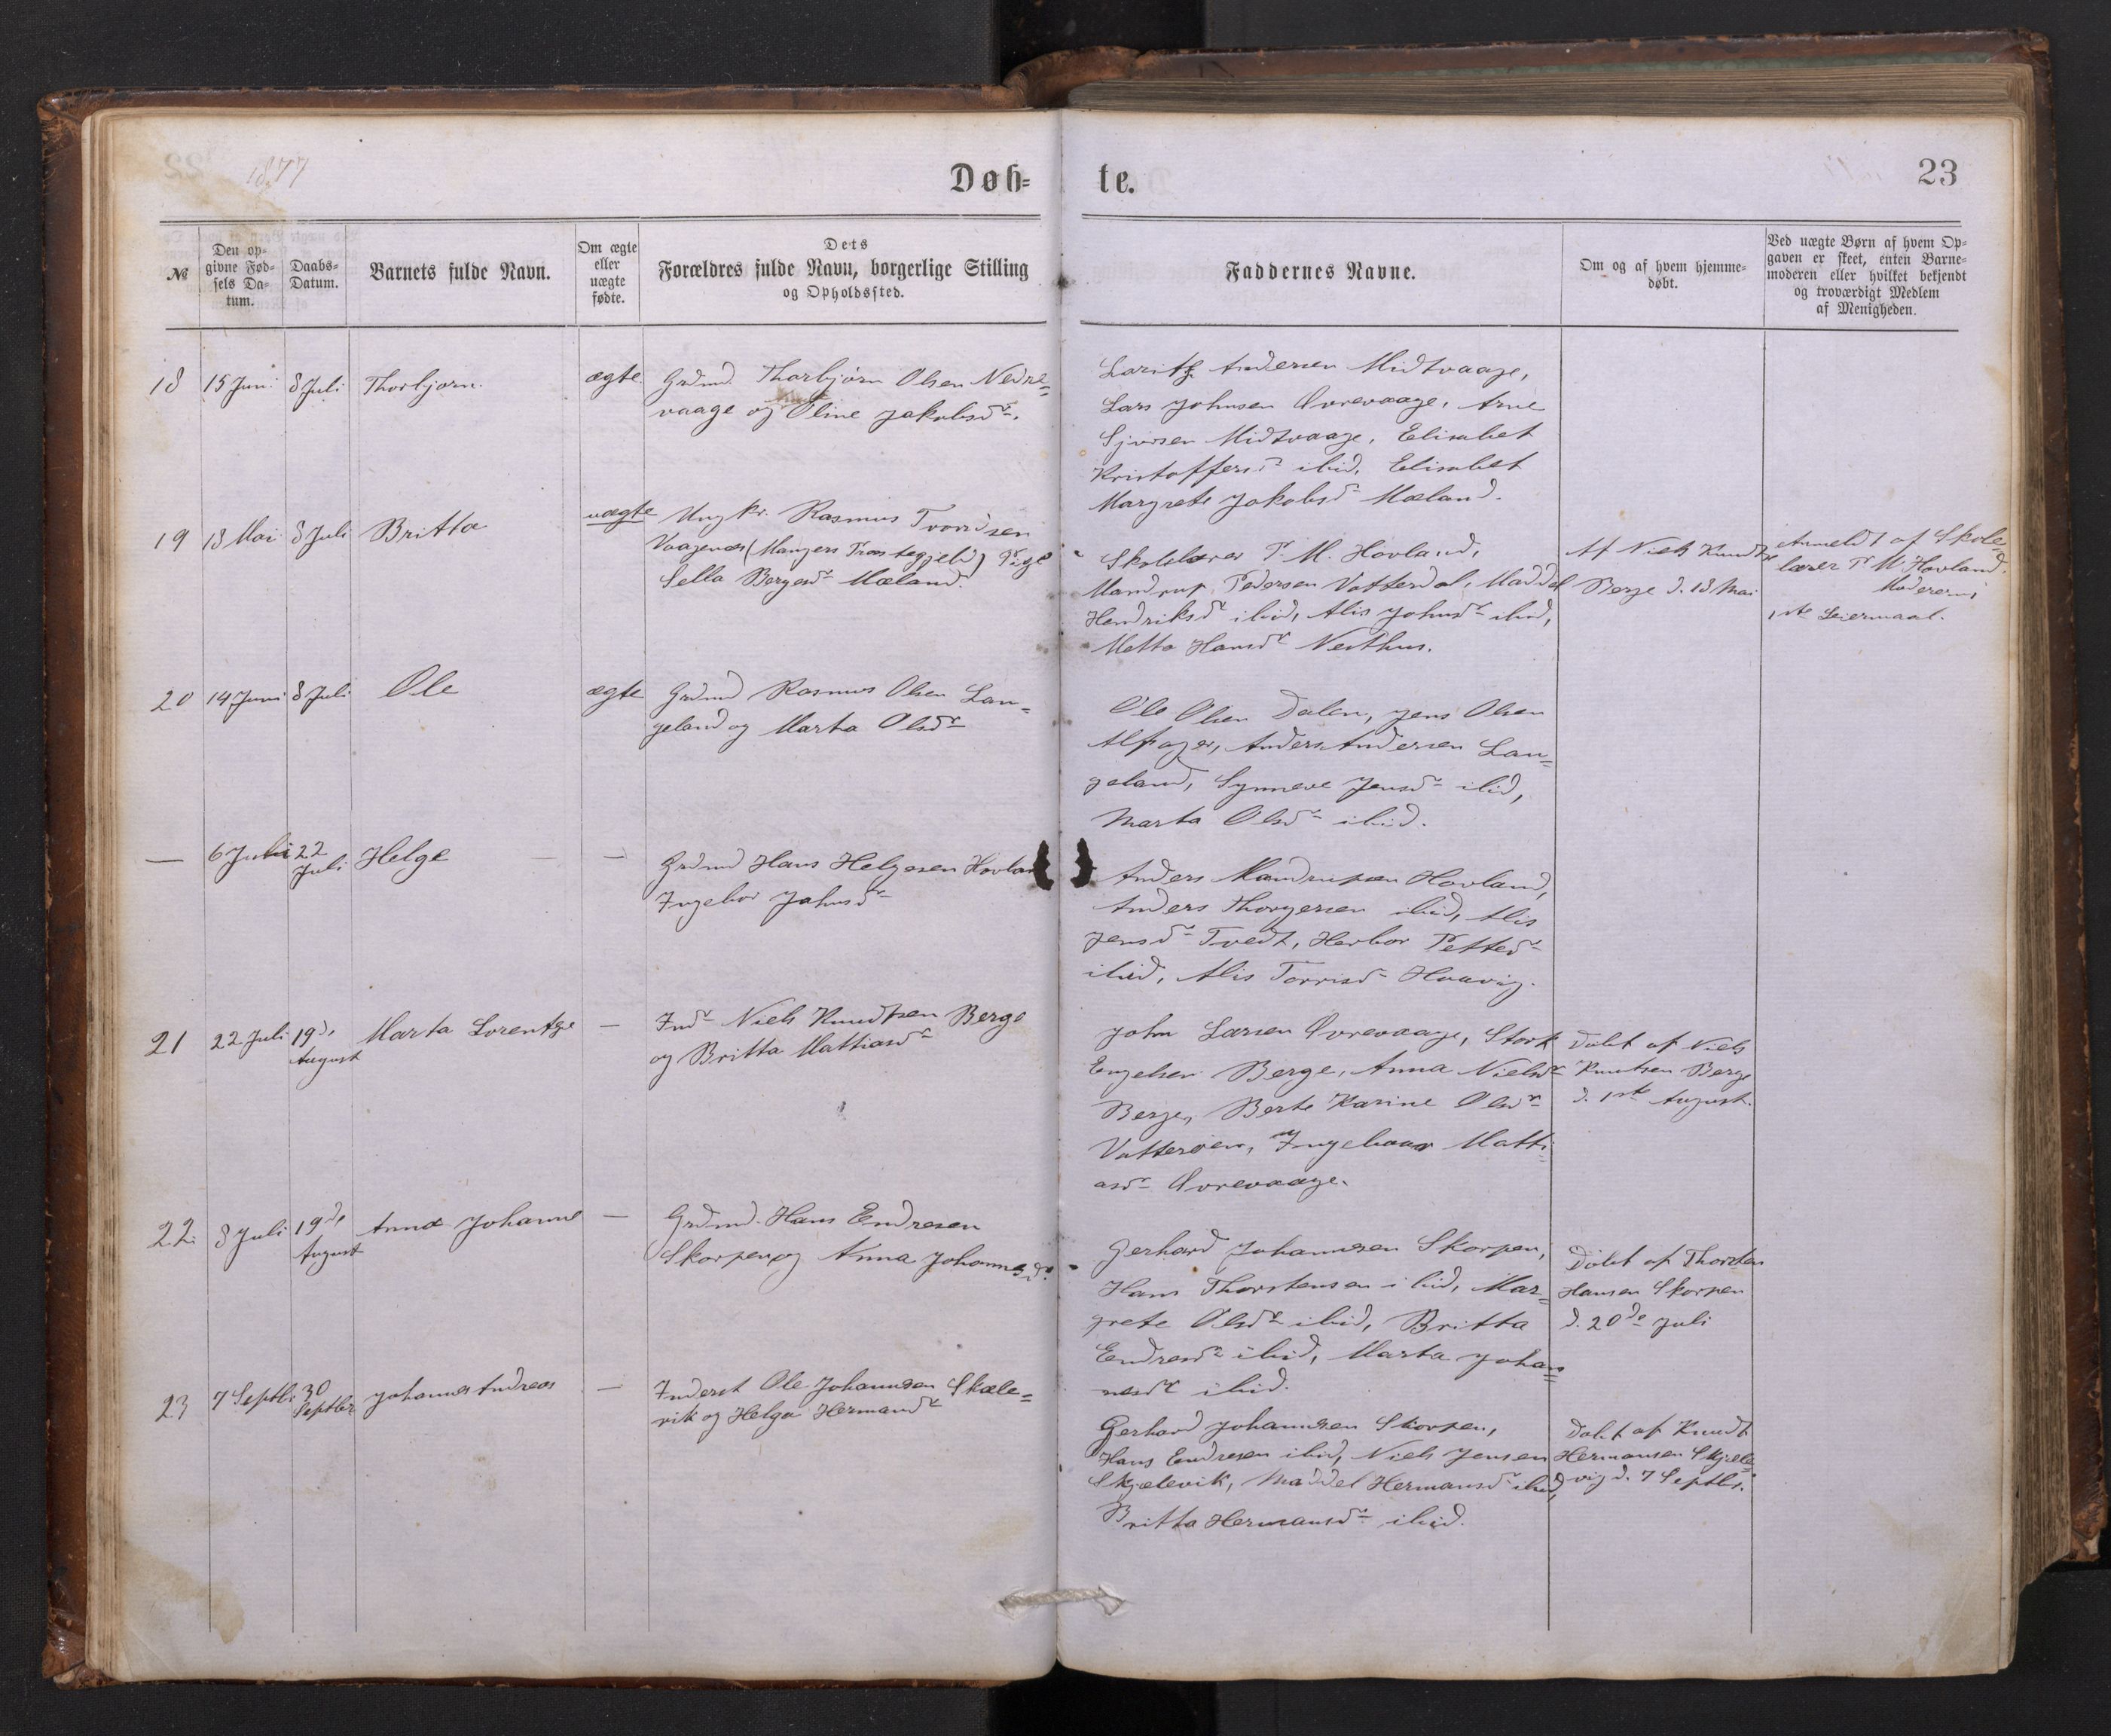 1877
Døb-
te.
23
№
Den op-
givne Fød-
sels Da-
tum.
Daabs-
Datum.
Barnets fulde Navn.
Om ægte
eller
uægte
fødte.
Dets
Forældres fulde Navn, borgerlige Stilling
og Opholdssted.
Faddernes Navne.
Om og af hvem hjemme-
døbt.
Ved uægte Børn af hvem Op-
gaven er skeet, enten Barne-
moderen eller hvilket bekjendt
og troværdigt Medlem
af Menigheden.
18 15 Juni 8 Juli Thorbjørn. ægte. Grdmd. Thorbjørn Olsen Nedre=
vaage og Oline Jakobsdr.
Andersen Midtvaage,
Lars Johnsen Øvrevaage, Arne
Sjursen Midtvaage, Elisabet
Kristoffersdr ibid, Elisabet
Margrete Jakobsdr Mæland.
19 13 Mai 8 Juli Britta uægte Ungkr. Rasmus
Vaagenæs (Mangers Præstegjeld) Pige
Sella Bergesdr Mæland.
Skolelærer P. M. Hovland,
Mandrup Pedersen Vatterdal, Maddel
Hendriksdr ibid, Alis Johnsdr ibid,
Metta Hansdr Nesthus.
Af Niels Knudts
Berge d. 13 Mai
Anmeldt af Skole=
lærer P. M. Hovland.
Moderens
1ste Leiermaal.
20 14 Juni 8 Juli Ole ægte Grdmd Rasmus Olsen Lan=
geland og Marta Olsdr
Ole Olsen Dalen, Jens Olsen
Anders Andersen Lan=
geland, Synneve Jensdr ibid,
Marta Olsdr ibid.
— 6 Juli 22
Juli Helge — Grdmd Hans Helgesen Hovland
Ingebor Johnsdr
Anders Mandrupsen Hovland,
Anders Thorgersen ibid, Alis
Jensdr Tvedt, Herbor Pettersdr
ibid, Alis Torrisdr Haavig.
21 22 Juli 19de
August Marta Lorentze — Indr Niels Knudtsen Berge
og Britta Mattiasdr
John Larsen Øvrevaage, Stork
Engelsen Berge, Anna Nielsdr
Berge, Berte Karine Olsdr
Vatterøen, Ingeboar Matti=
asdr Øvrevaage.
Døbt af Niels
Knutsen Berge
d. 1ste August.
22 8 Juli 19de
August Anna Johanne — Grdmd. Hans Endresen
Skorpen og Anna Johannesdr.
Gerhard Johannesen Skorpen,
Hans Thorstensen ibid, Mar=
grete Olsdr ibid, Britta
Endresdr ibid, Marta Johan=
nesdr ibid.
Døbt af Thorsten
Hansen Skorpen
d. 20de Juli
23 7 Septbr 30
Septbr Johannes Andreas — Inderst Ole Johannesen Skæle=
vik og Helga Hermansdr
Gerhard Johannesen Skorpen,
Hans Endresen ibid, Niels Jensen
Skjælevik, Maddel Hermansdr ibid,
Britta Hermansdr ibid.
Døbt af Knudt
Hermansen Skjæle=
vig d. 7 Septbr.